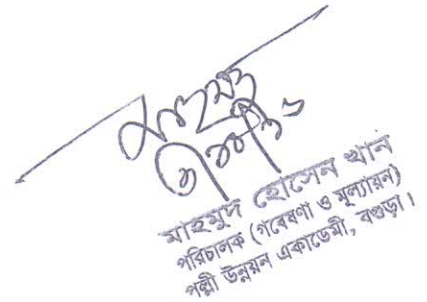 মাহমুদ হোসেন খান
পরিচালক (গবেষণা ও মূল্যায়ন)
পল্লী উন্নয়ন একাডেমী, বগুড়া।